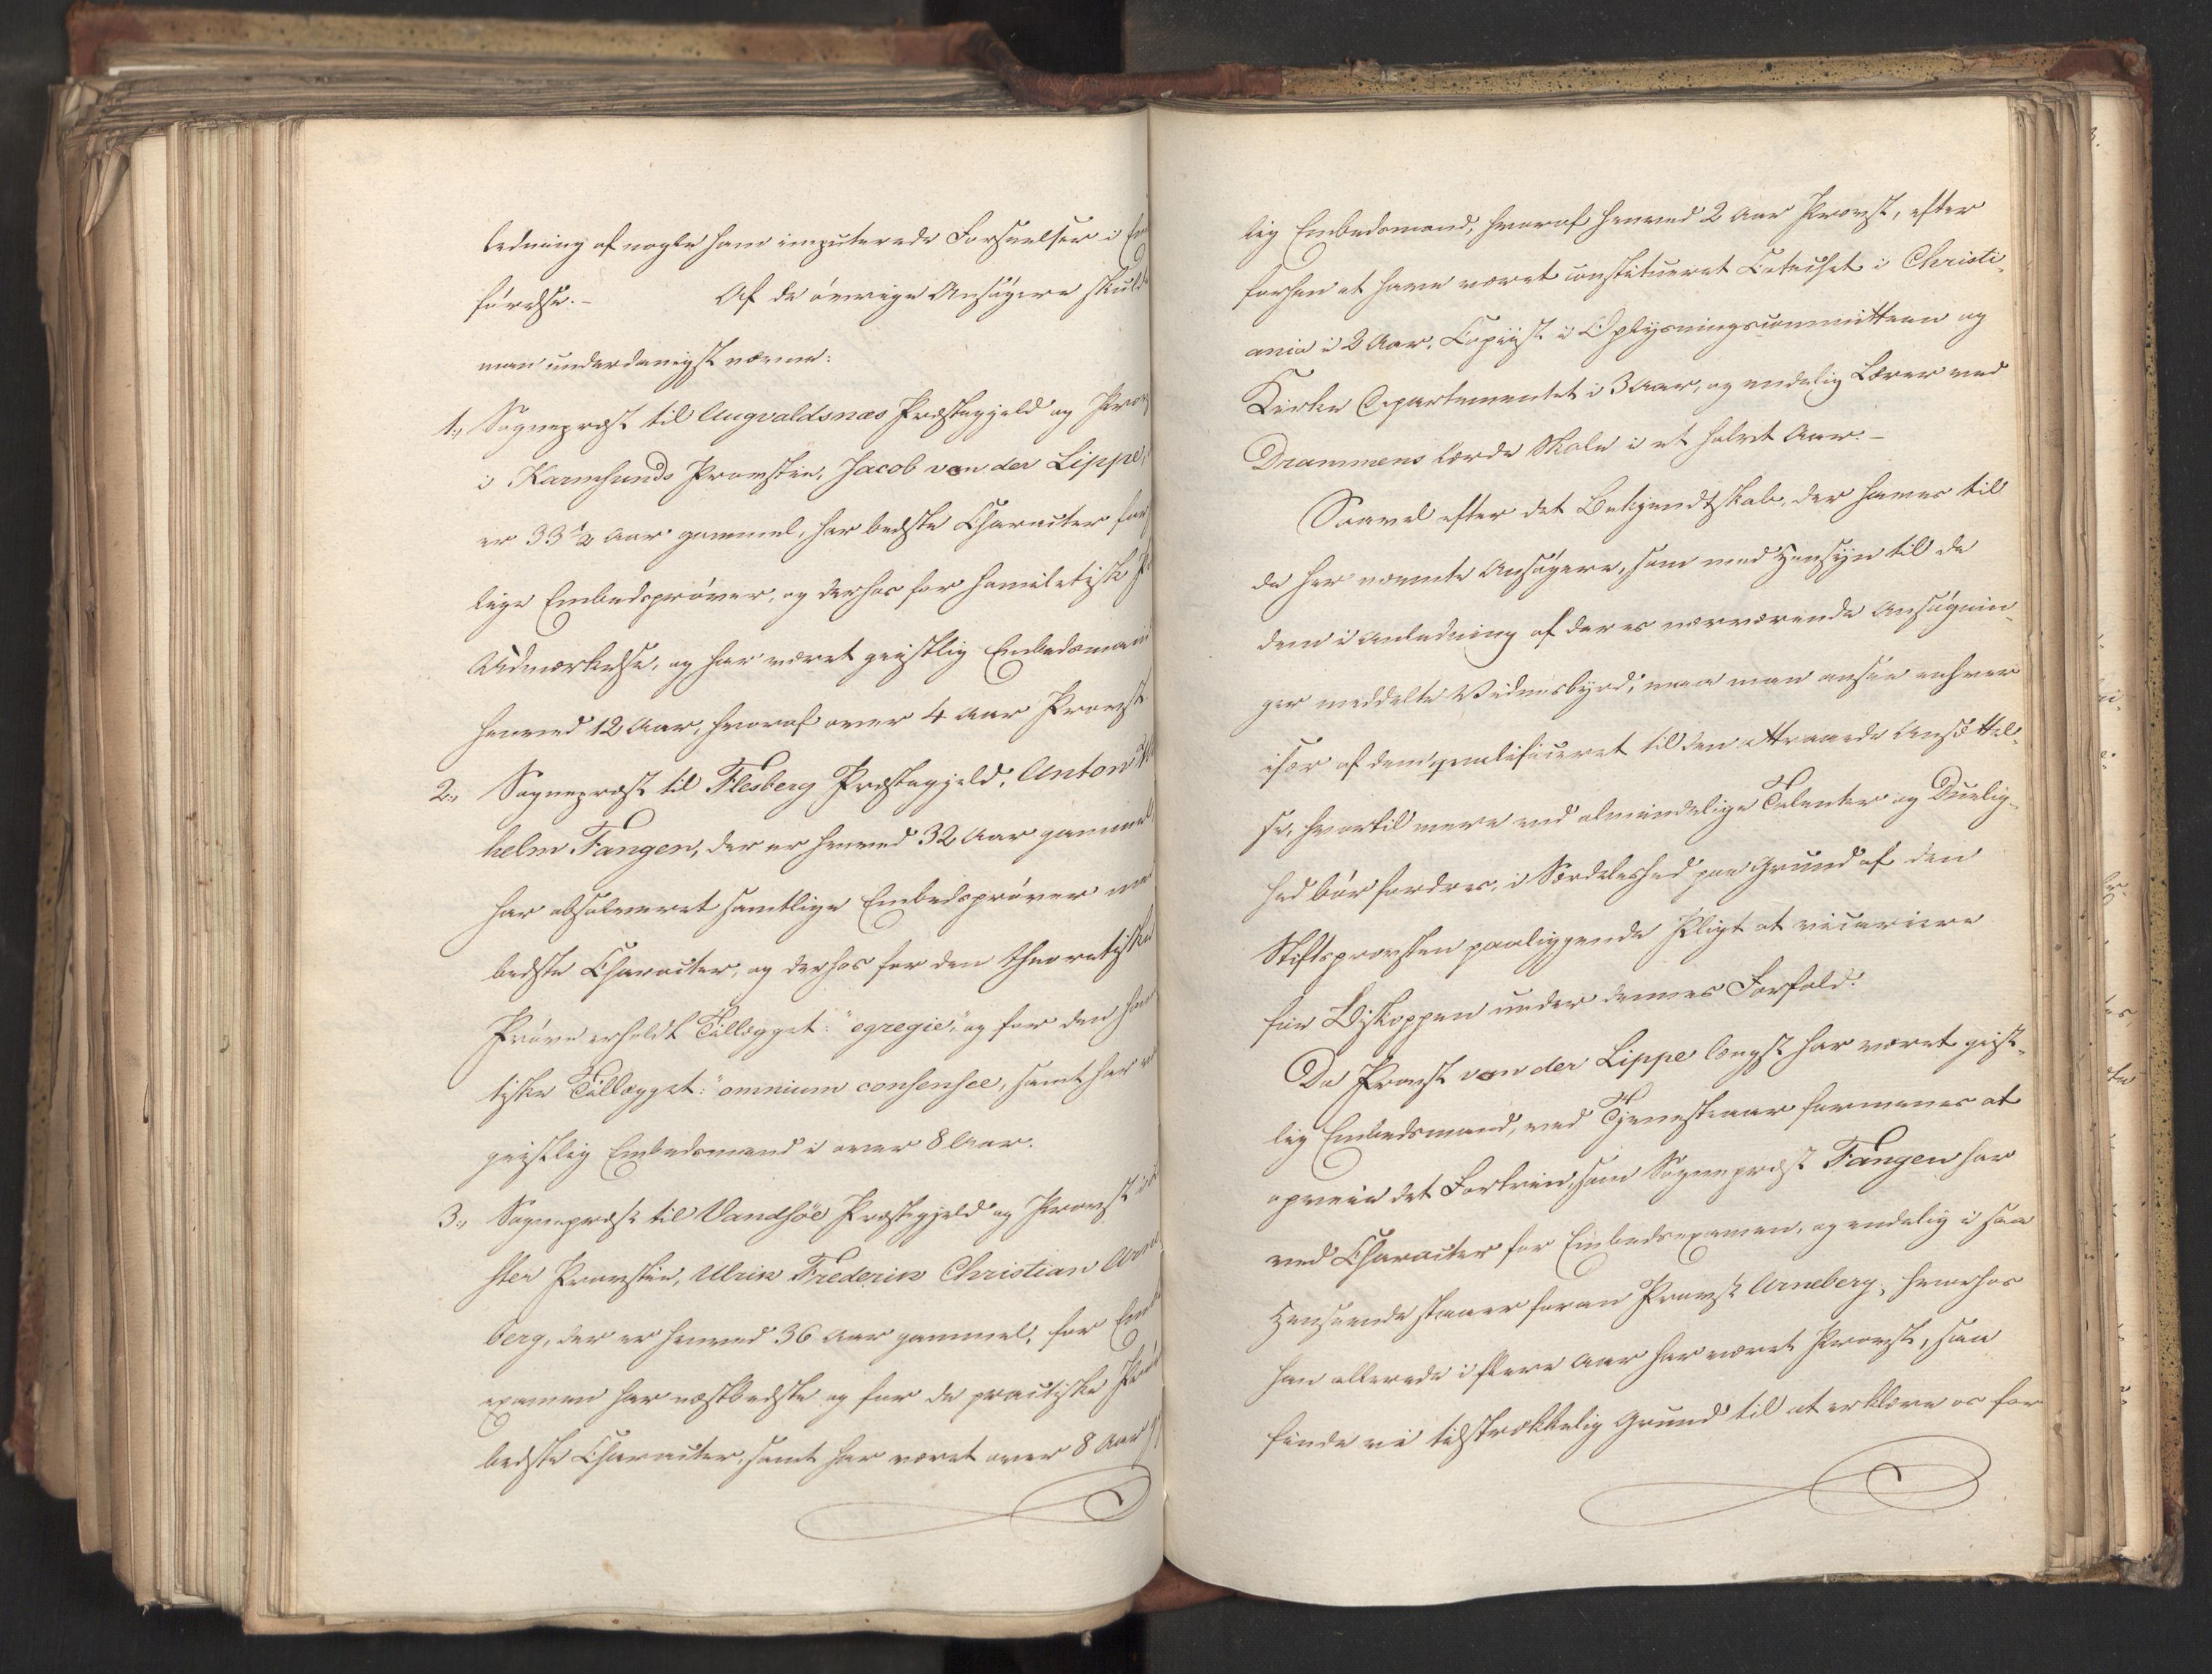 ledning af nogle ham imputerede Forseelser i Em
førelse. – Af de øvrige Ansøgere skulde
man underdanigst nævne:
1., Sognepræst til Augvaldsnæs Præstegjeld og Prov
i Karmsunds Provstie, Jacob von der Lippe,
er 33½ Aar gammel, har bedste Character for
lige Embedsprøver, og derhos for homiletisk Pr
Udmærkelse, og har været geistlig Embedsmand
henved 12 Aar, hvoraf over 4 Aar Provst
2., Sognepræst til Flesberg Præstegjeld, Anton
helm Fangen, der er henved 32 Aar gammel
har absolveret samtlige Embedsprøver me
bedste Character, og derhos for den theoretiske
Prøve erholdt Tillægget: "egregie," og for den ho
tiske Tillægget: "omnium consensu, samt har v
geistlig Embedsmand i over 8 Aar.
3., Sognepræst til Vandsøe Præstegjeld og Provst i
ster Provstie, Ulrik Frederik Christian Arne
berg, der er henved 36 Aar gammel, for Emb
examen har næstbedste og for de practiske Prø
bedste Character, samt har været over 8 Aar g
lig Embedsmand, hvoraf henved 2 Aar Provst, efter
forhen at have været constitueret Catechet i Christi-
ania i 2 Aar, Copiist i Oplysningscommitteen og
Kirke Departementet i 3 Aar, og endelig Lærer ved
Drammens lærde Skole i et halvt Aar. –
Saavel efter det Bekjendtskab, der haves til
de her nævnte Ansøgere, som med Hensyn til de
dem i Anledning af deres nærværende Ansøgnin-
ger meddelte Vidnesbyrd, maa man ansee enhver
især af dem qualificeret til den attraaede Ansættel-
se, hvortil mere end almindelige Talenter og Duelig-
hed bør fordres, i Særdeleshed paa Grund af den
Stiftsprovsten paaliggende Pligt at vicariere
for Biskoppen under dennes Forfald.
Da Provst von der Lippe længst har været geist-
lig Embedsmand, ved Tjenesteaar formenes at
opveie det Fortrin, som Sognepræst Fangen har
ved Character for Embedsexamen, og endelig i saa
Henseende staaer foran Provst Arneberg, hvorhos
han allerede i flere Aar har været Provst, saa
finde vi tilstrækkelig Grund til at erklære os for